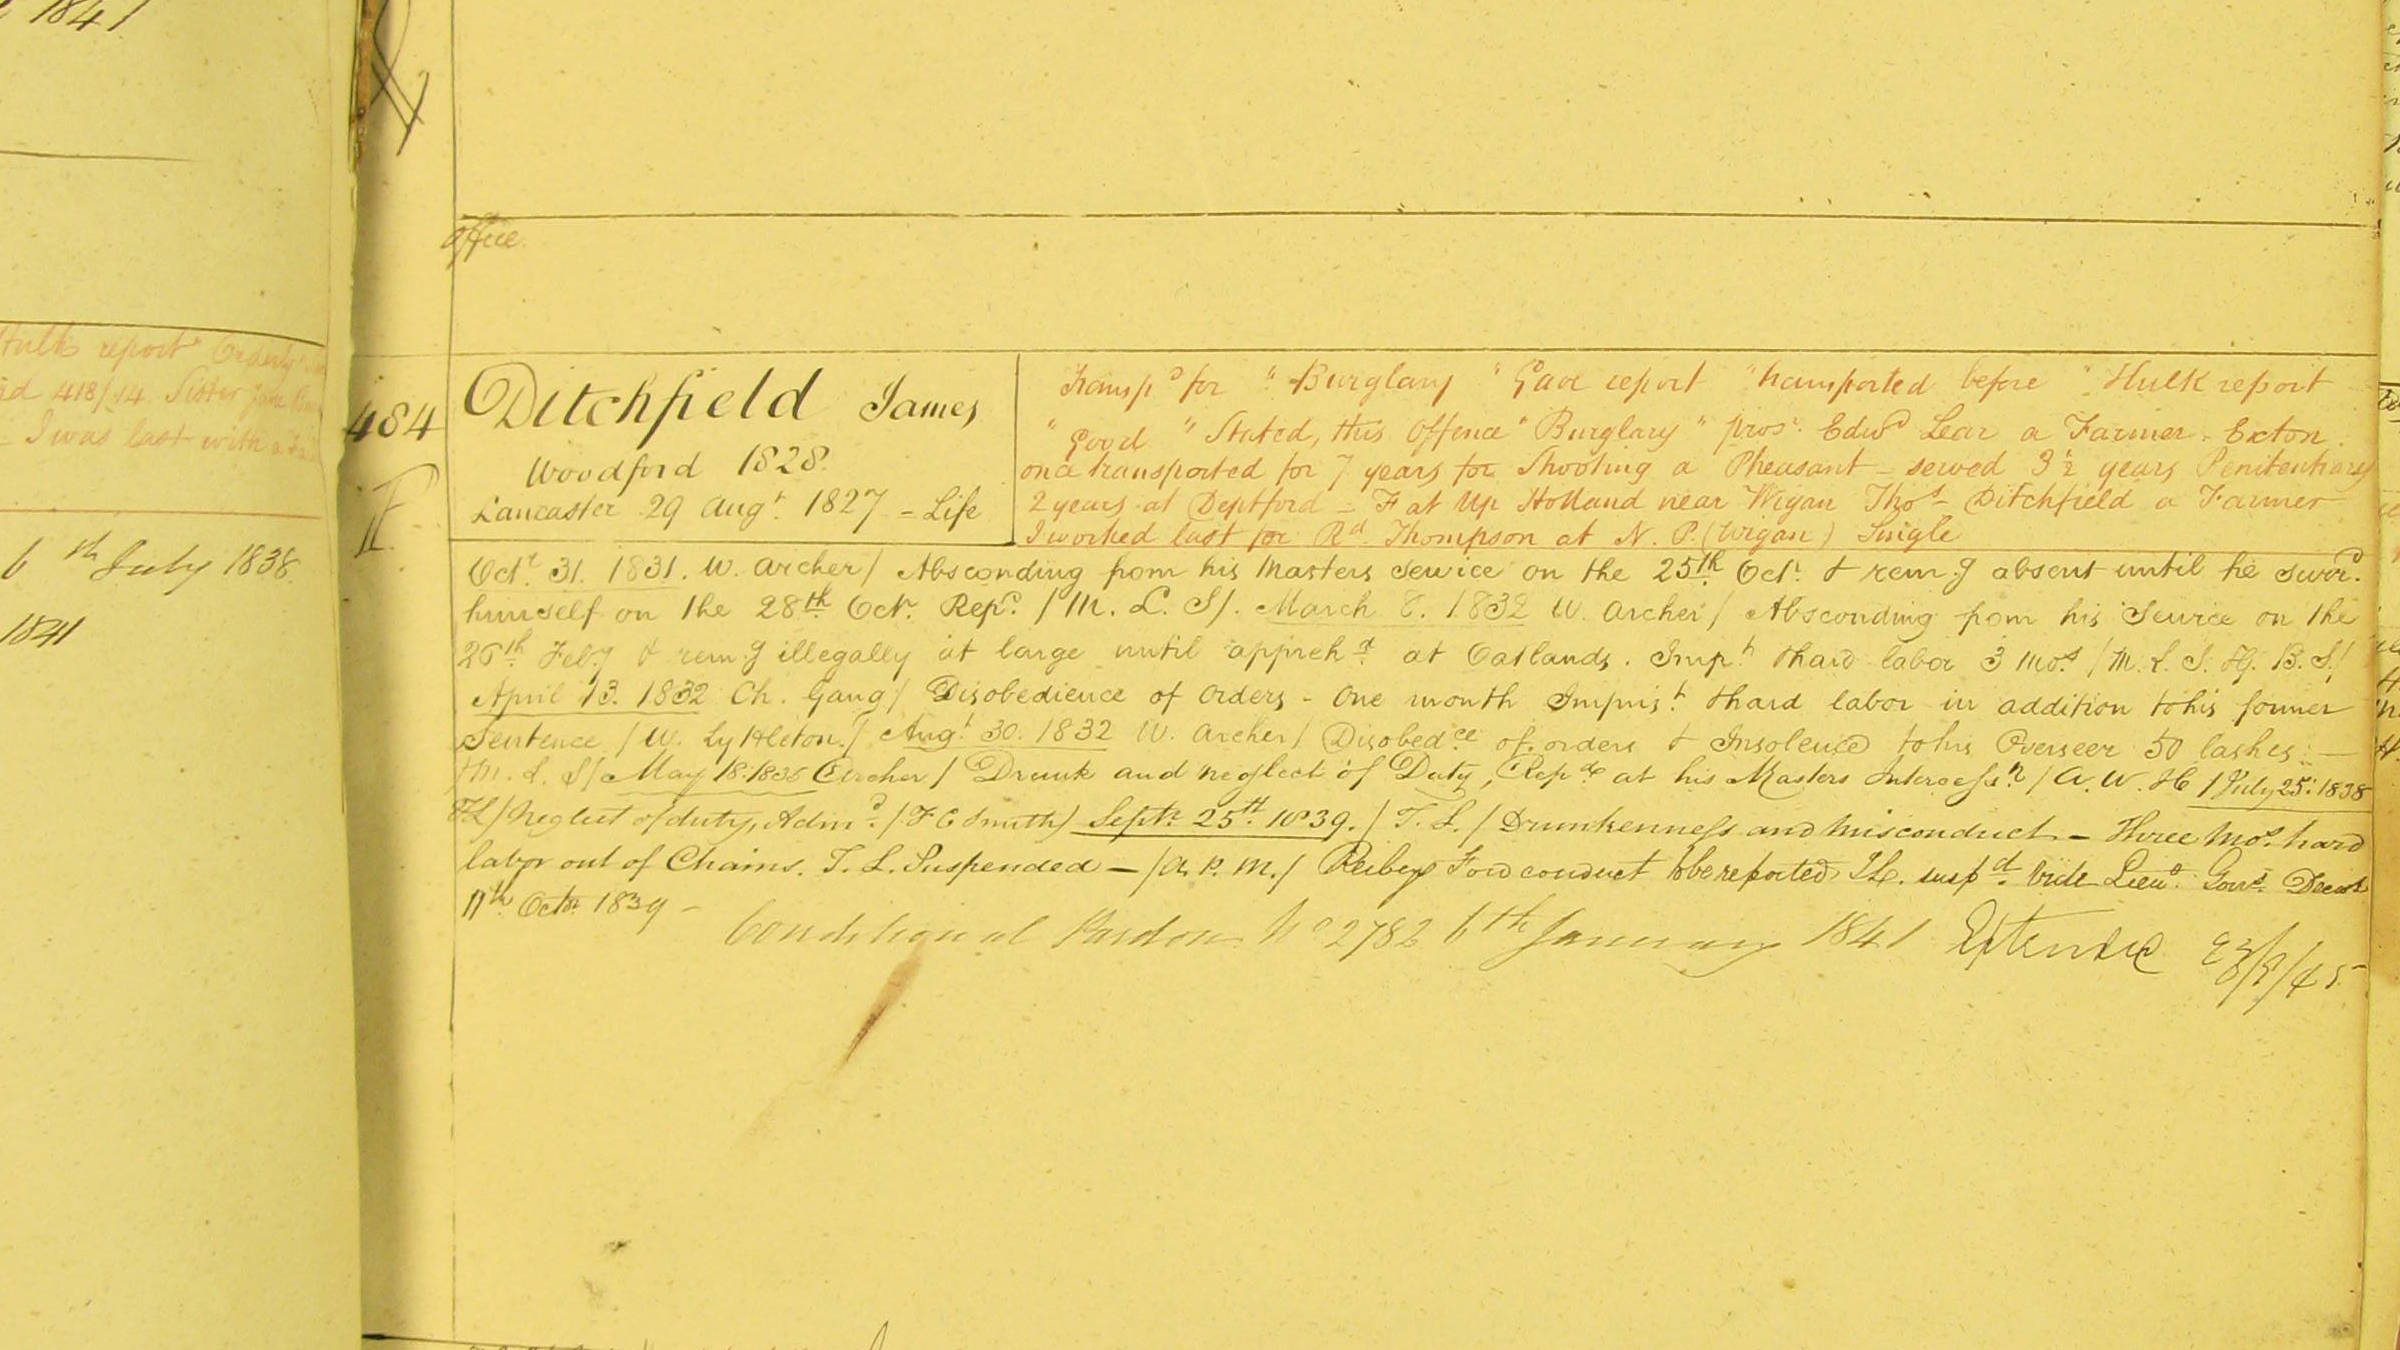 1841
office.
Hulk report Orderly
418/14. Sister Jane
I was last with a
6th July 1838.
1841
484
Ditchfield James
Woodford 1828.
Lancaster 29 Augt. 1827 - Life
Transpd for "Burglary" Gaol report "transported before" Hulk report
"Good" Stated, this Offence "Burglary" prosr. Edwd Lear a Farmer - Exton.
once transported for 7 years for Shooting a Pheasant - served 3½ years Penitentiary
2 years at Deptford - F at Up Holland near Wigan Thos Ditchfield a Farmer
I worked last for Rd. Thompson at N. P. (Wigan) Single
Octr. 31. 1831. W. Archer/ Absconding from his Masters Service on the 25th. Octr. & remg absent until he surrd.
himself on the 28th Octr. Repd. /M. L. S/. March 8. 1832 W. Archer/ Absconding from his Service on the
26th Feby & remg illegally at large until apprehd. at Oatlands. Impt & hard labor 3 mos /M. L. S. H. B. S./
April 13. 1832 Ch. Gang/ Disobedience of Orders - One month Imprist. & hard labor in addition to his former
Sentence /W. Lyttleton./ Augt. 30. 1832 W. Archer/ Disobedce of orders & Insolence to his Overseer 50 lashes: -
/M. L. S/ May 18: 1835 Archer/ Drunk and neglect of Duty, Repd at his Masters Intercessn. /A. W. H /July 25: 1838
TL/ Neglect of duty, Admd. /F C Smith/ Septr. 25th. 1839. /T. L./ Drunkenness and misconduct - Three Mos. hard
labor out of Chains. T. L. Suspended - /A. P. M./ Reibeys Ford conduct to be reported TL. suspd. vide Lieut. Govrs. Decon
11th Octr. 1839 -
Conditional Pardon No 2782 6th January 1841 Extended 23/9/45